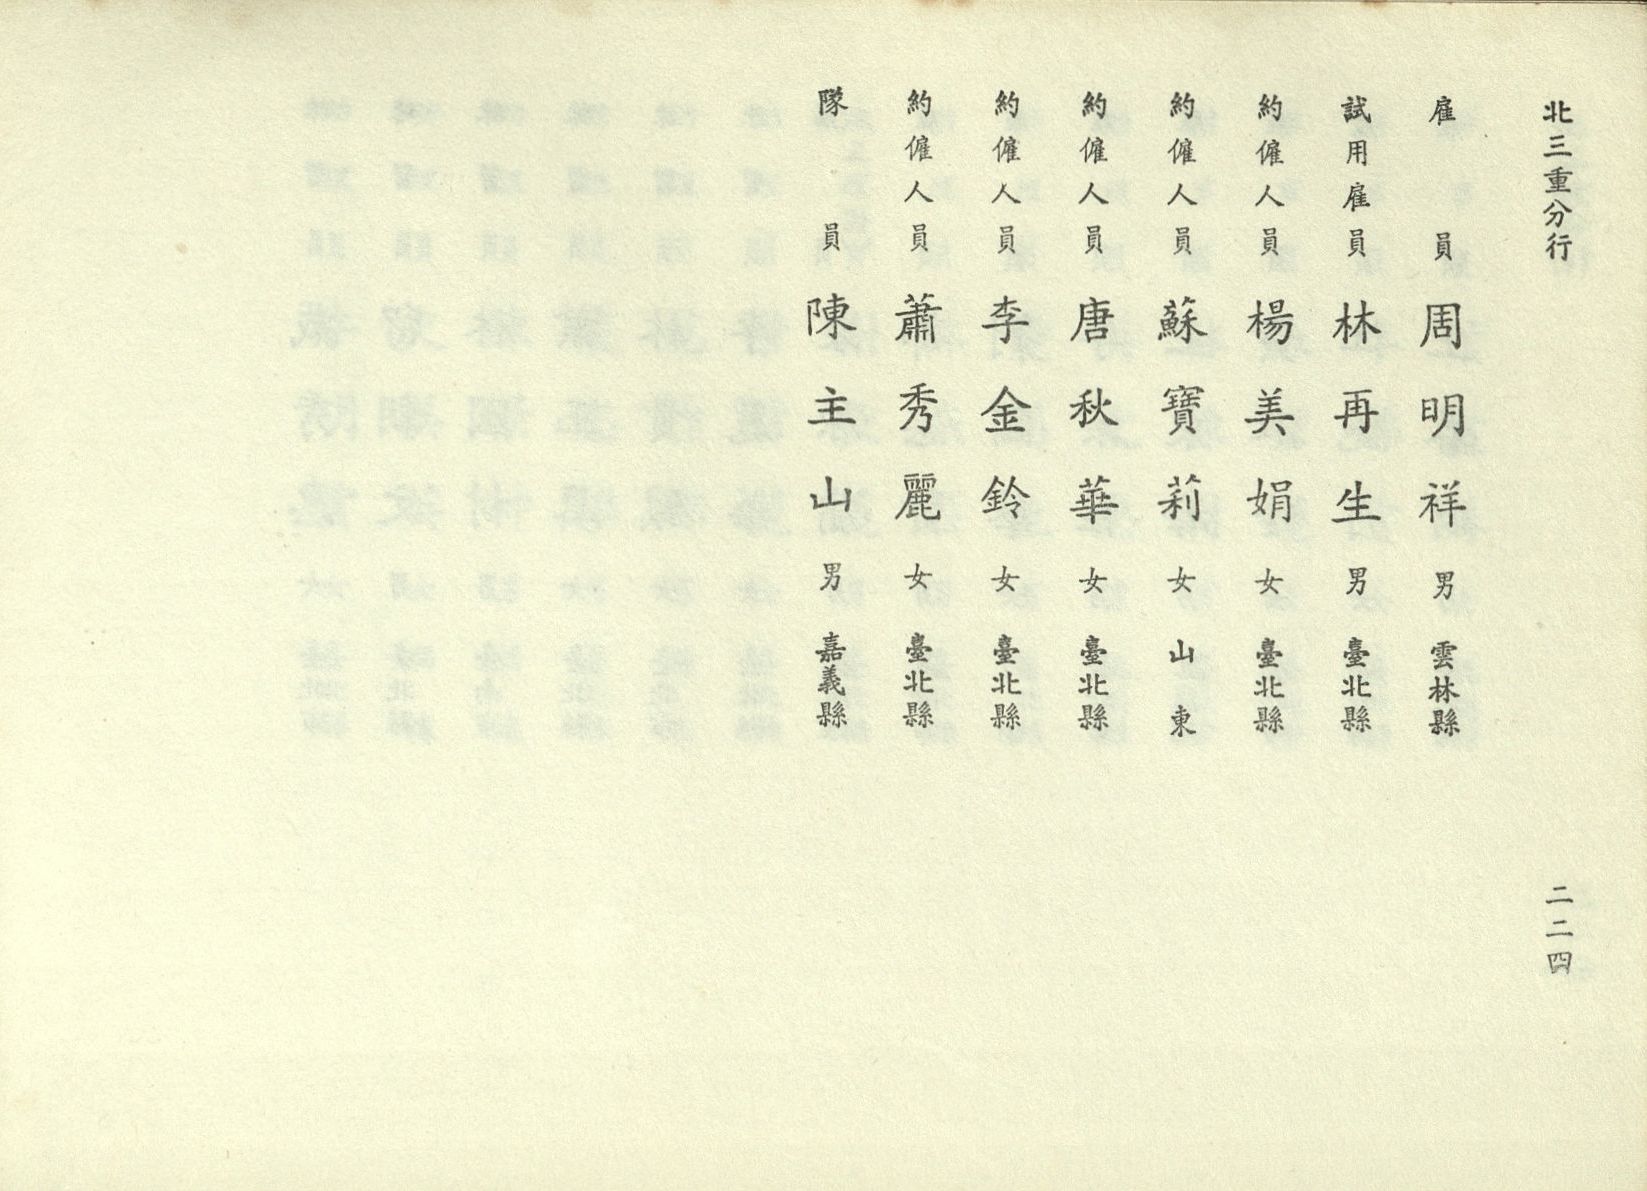 北三重分行
二二四
雇員 周明祥 男 雲林縣
試用雇員 林再生 男 臺北縣
約僱人員 楊美娟 女 臺北縣
約僱人員 蘇寶莉 女 山東
約僱人員 唐秋華 女 臺北縣
約僱人員 李金鈴 女 臺北縣
約僱人員 蕭秀麗 女 臺北縣
隊員 陳主山 男 嘉義縣